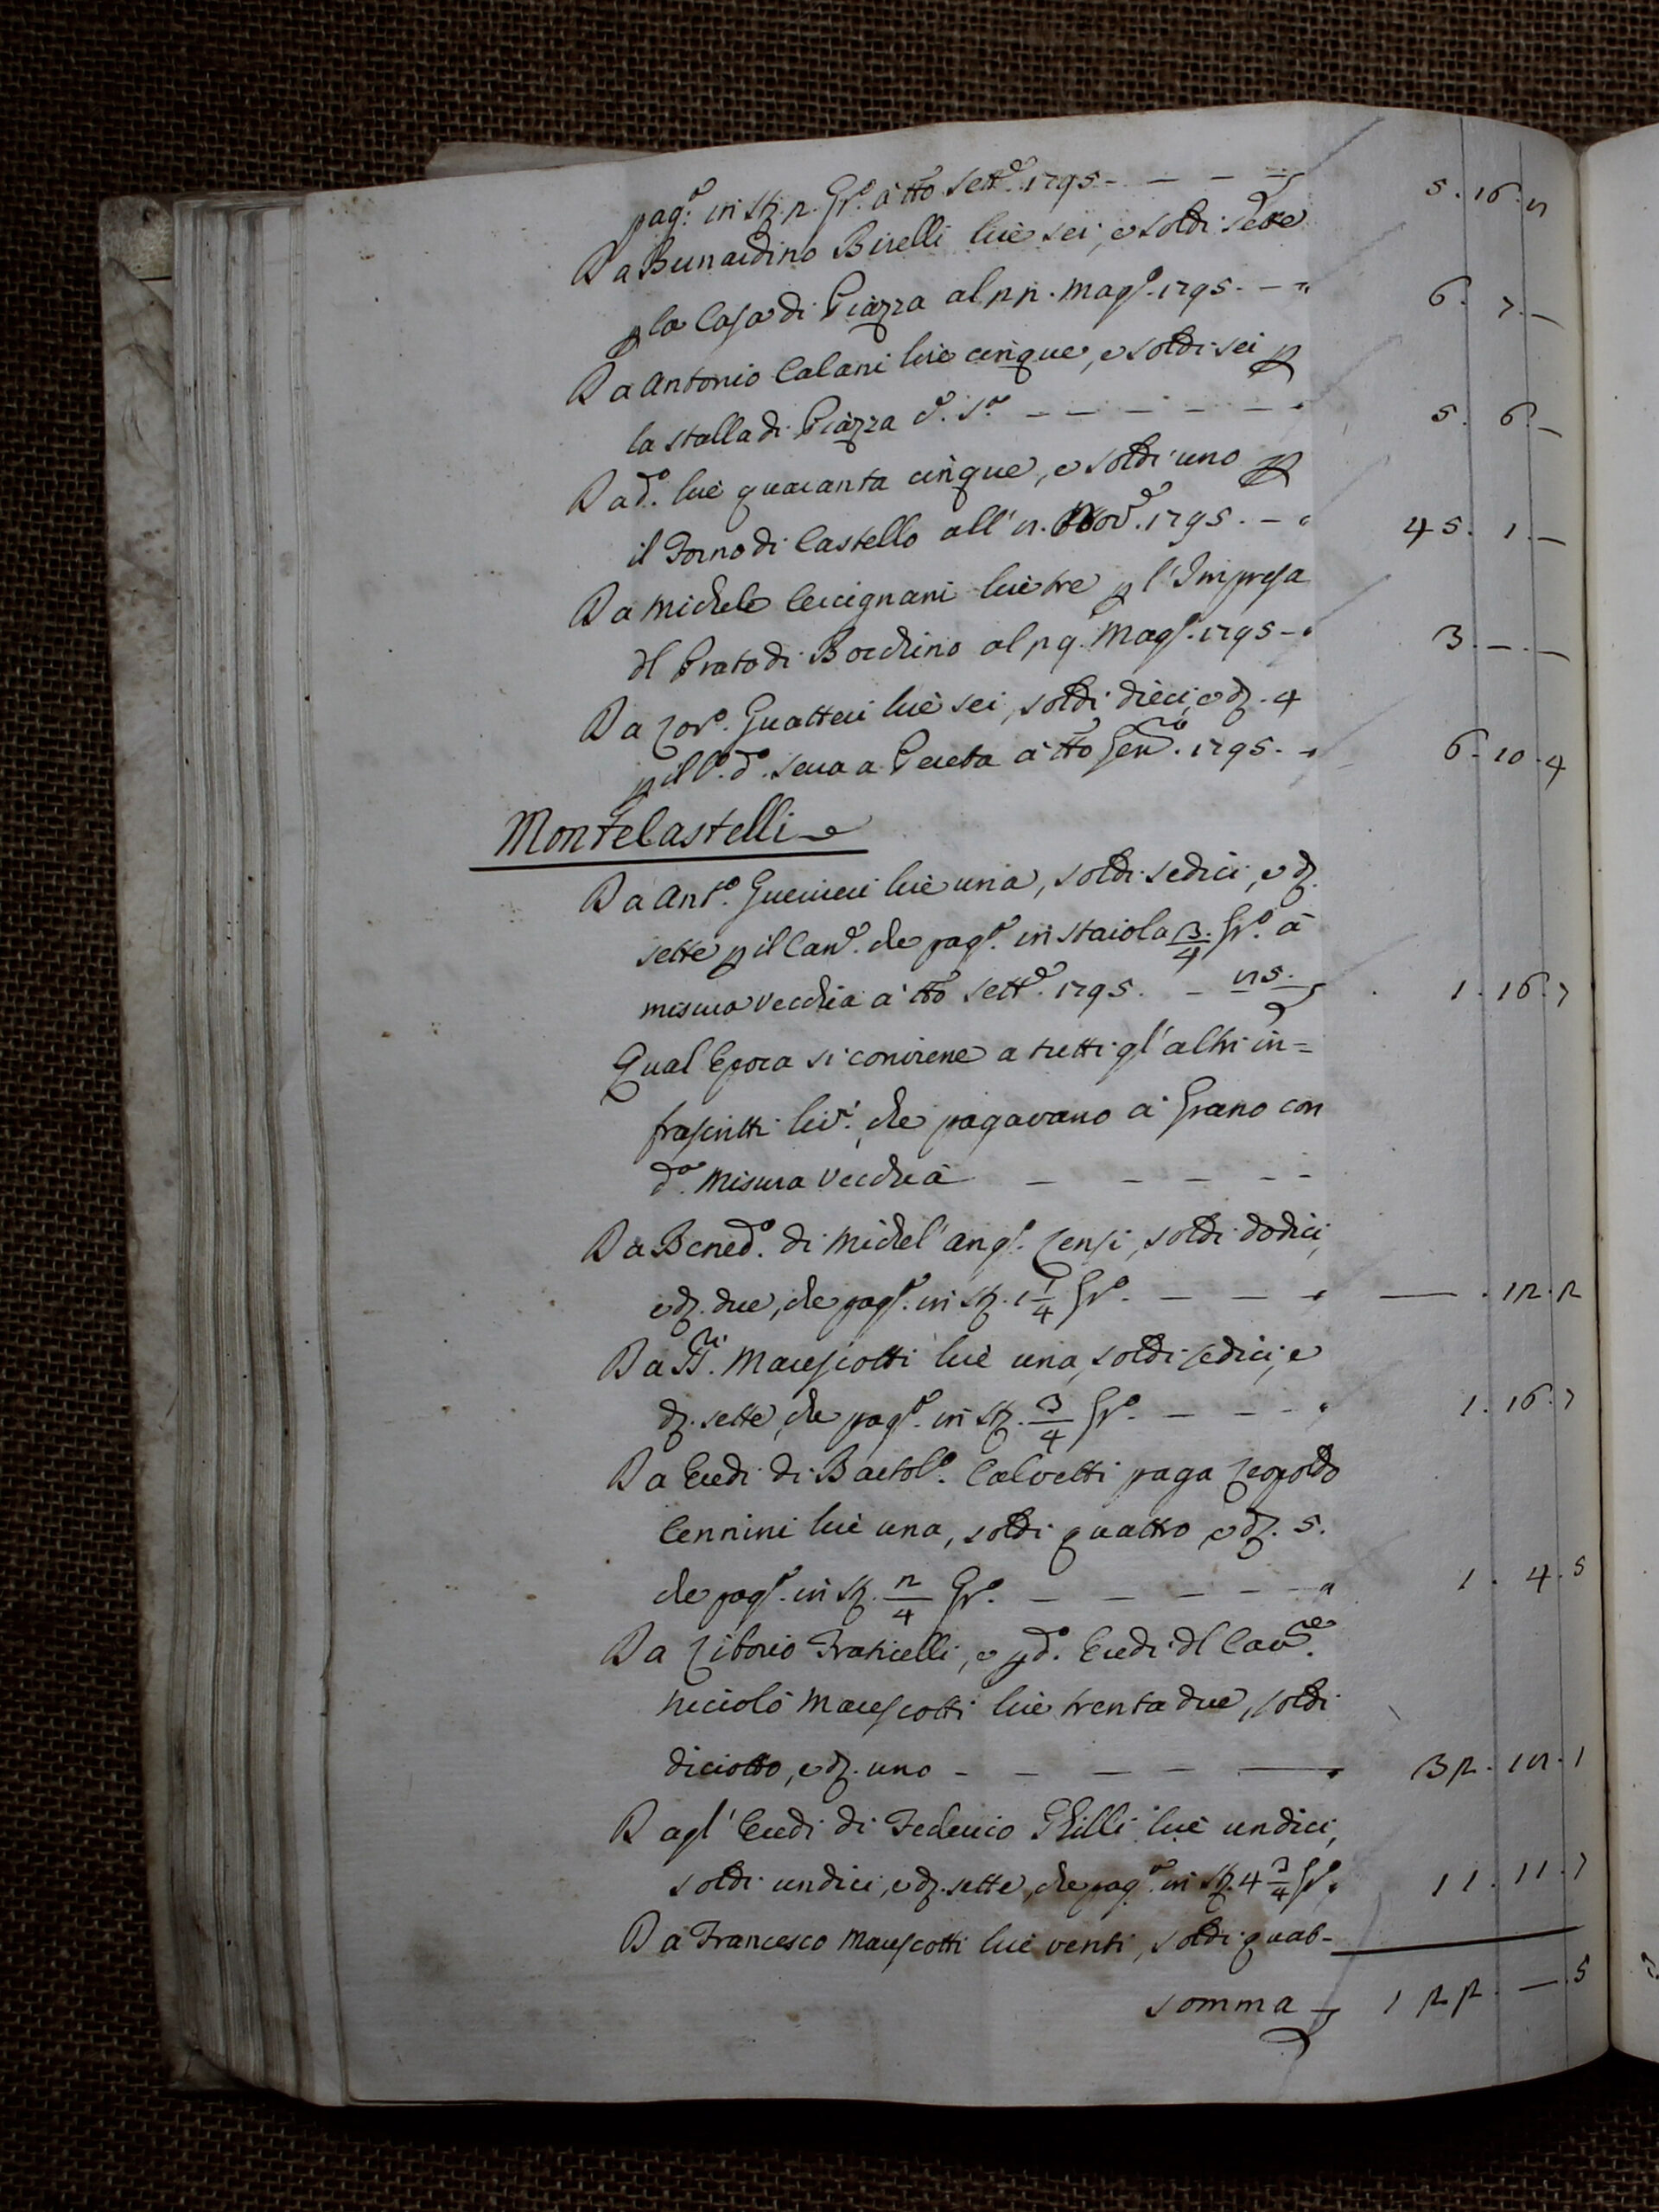 pag.º in Sta. 2. Gr.º a tto Sett.e 1795 - - - -
5. 16. 8
Da Bernardino Birelli lire sei, e soldi sette
p la Casa di Piazza al 22. Mag.º 1795. - "
6. 7. -
Da Antonio Calani lire cinque, e soldi sei p
la stalla di Piazza d.ª S.ª - - - - - -
5. 6. -
Da d.º lire quaranta cinque, e soldi uno p
il Forno di Castello all' 8. Nov.e 1795. - "
45. 1. -
Da Michele Cercignani lire tre p l'Impresa
dl Prato di Bocchino al 29. Mag.º 1795 - "
3. -. -
Da Lor.º Guatteri lire sei, soldi dieci, e d. 4
p il P.º d.º Serra a Pereta a tto Gen.ro 1795. - "
6. 10. 4
MonteCastelli
Da Ant.º Guerrieri lire una, soldi sedici, e d.
sette p il Can.e che pag.ª in staiola 3/4 Gr.º a
misura vecchia a tto Sett.e 1795. -
1. 16. 7
Qual Epoca si conviene a tutti gl'altri in=
frascritti liv.i che pagavano a Grano con
d.ª Misura Vecchia - - - - -
Da Bened.º di Michel'Ang.º Lensi, soldi dodici,
e d. due, che pag.ª in Sta. 1/4 Gr.º - - - "
—. 12. 2
Da Marescotti lire una, soldi sedici, e
d. sette, che pag.ª in Sta. 3/4 Gr.º - - - "
1. 16. 7
Da Eredi di Bartol.º Calvetti paga Leopoldo
Cennini lire una, soldi quattro e d. 5.
che pag.ª in Sta. 2/4 Gr.º - - - - - "
1. 4. 5
Da Liborio Fraticelli, e p d.º Eredi dl Cav.re
Niccolò Marescotti lire trenta due, soldi
diciotto, e d. uno - - - - -
32. 18. 1
Dagl'Eredi di Federico Ghilli lire undici,
soldi undici, e d. sette, che pag.ª in Sta. 4 3/4 Gr.º
11. 11. 7
Da Francesco Marescotti lire venti, soldi quat-
Somma - 122. -. 5